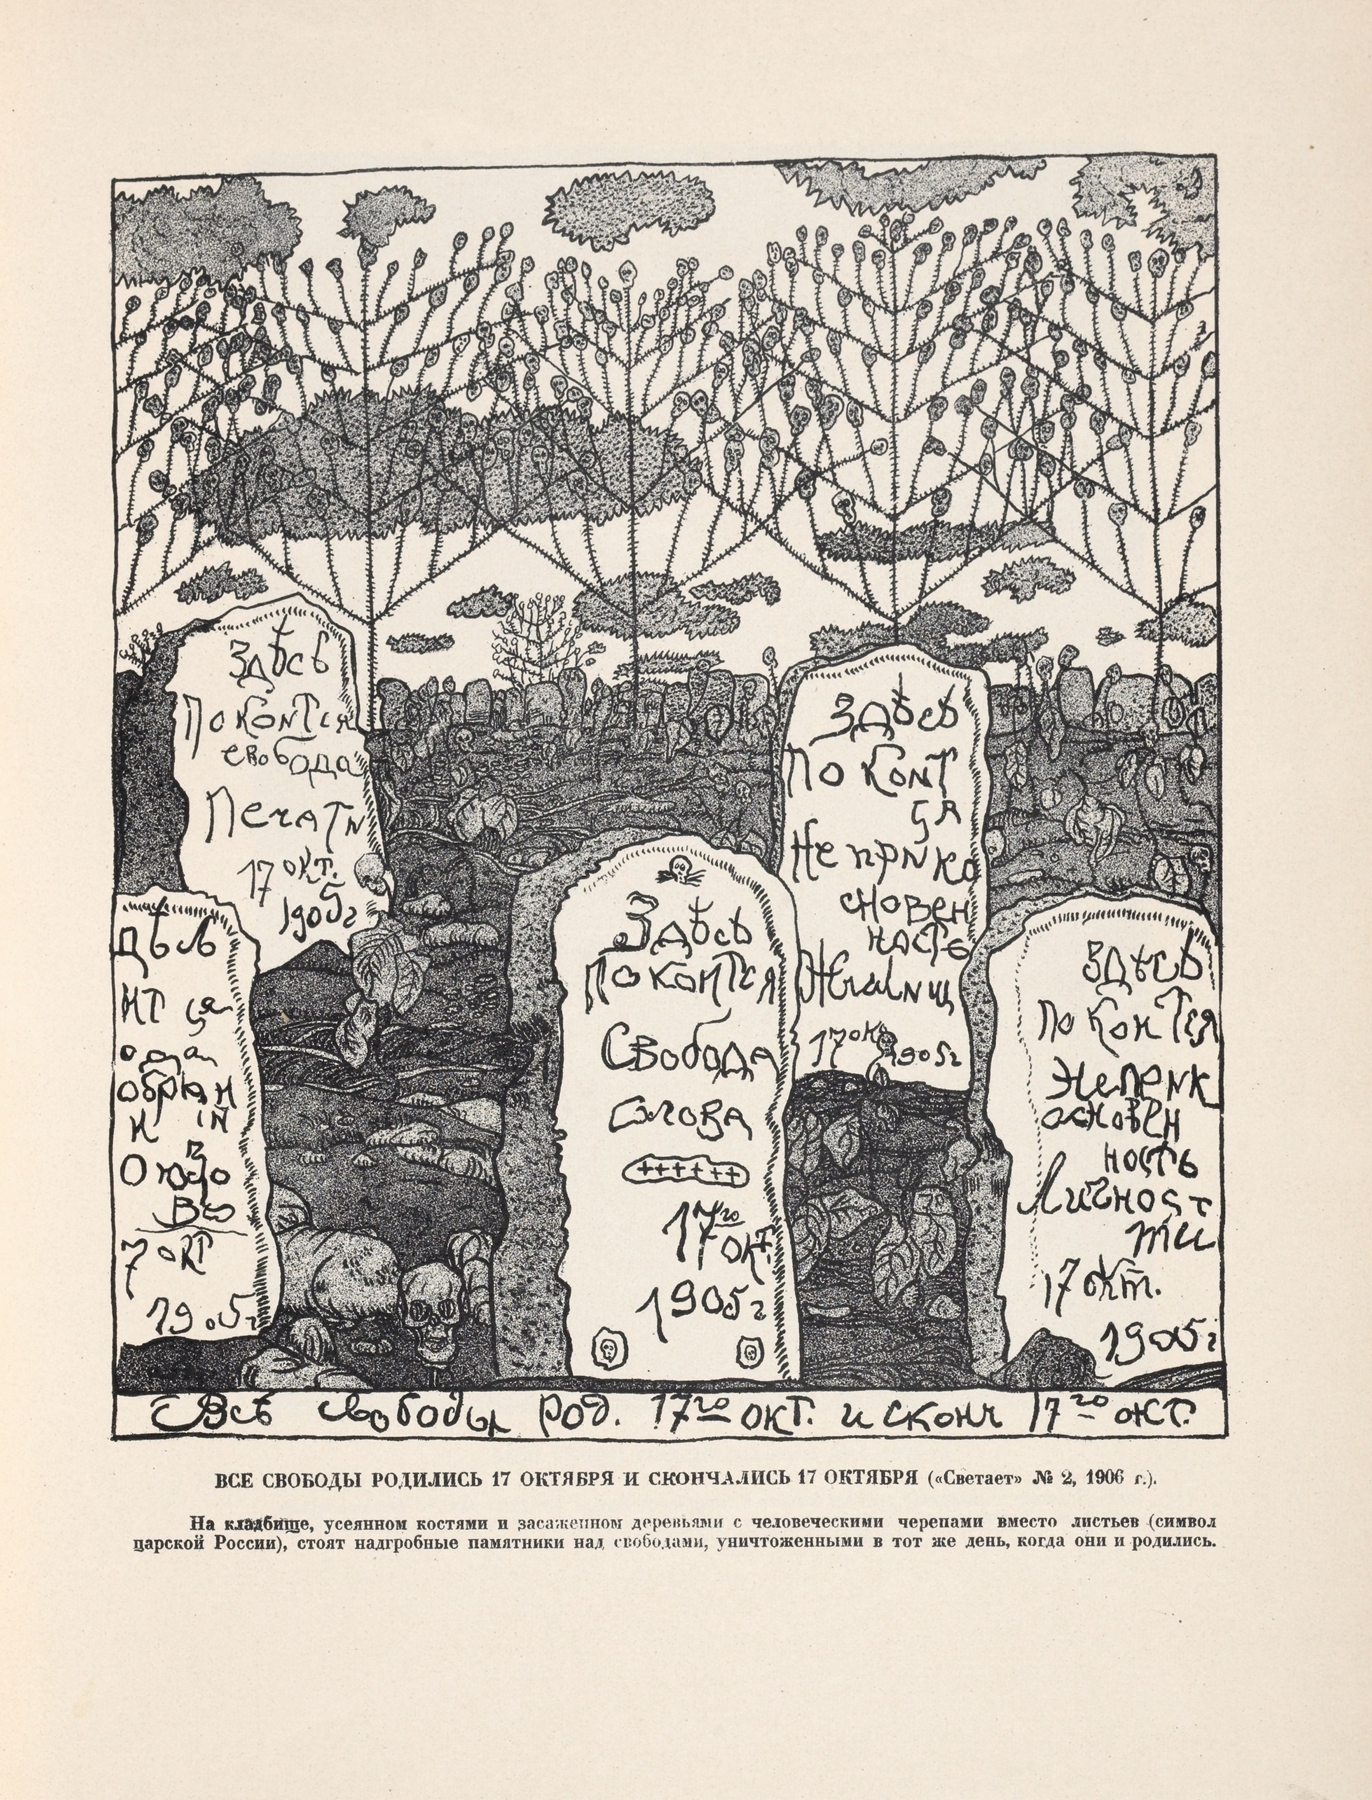 Здѣсь
покоитея
свобода
Печати
17 окт.
1905г
дѣсь
ит ця
ода
обрѩн
ій
17 окт
1905г
Здѣсь
покоится
Свобода
слова
17го
окт.
1905г
Здѣсь
покоит
ся
Неприко
сновен
ность
Жилищ
17 ок 1905г
Здѣсь
покоится
Неприк
основен
ность
Личност
ти
17 окт.
1905г
Всѣ свободы род. 17го окт. и сконч 17го окт.
ВСЕ СВОБОДЫ РОДИЛИСЬ 17 ОКТЯБРЯ И СКОНЧАЛИСЬ 17 ОКТЯБРЯ («Светает» № 2, 1906 г.).
На кладбище, усеянном костями и засаженном деревьями с человеческими черепами вместо листьев (символ
царской России), стоят надгробные памятники над свободами, уничтоженными в тот же день, когда они и родились.